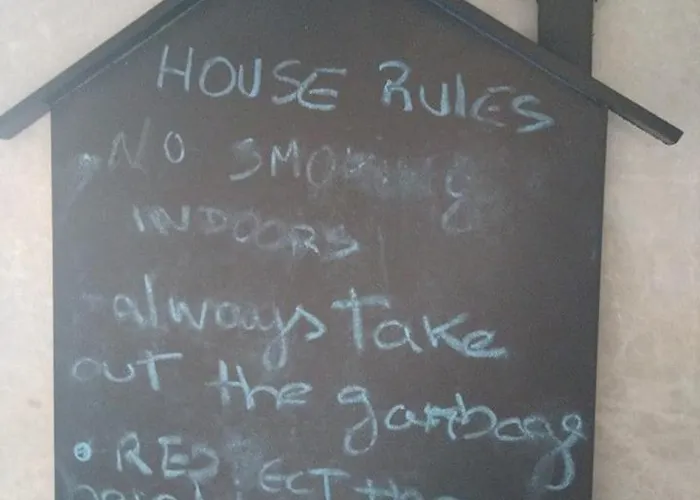 HOUSE RULES
- NO SMOKING
INDOORS
- always Take
out the garbage
• RESPECT the